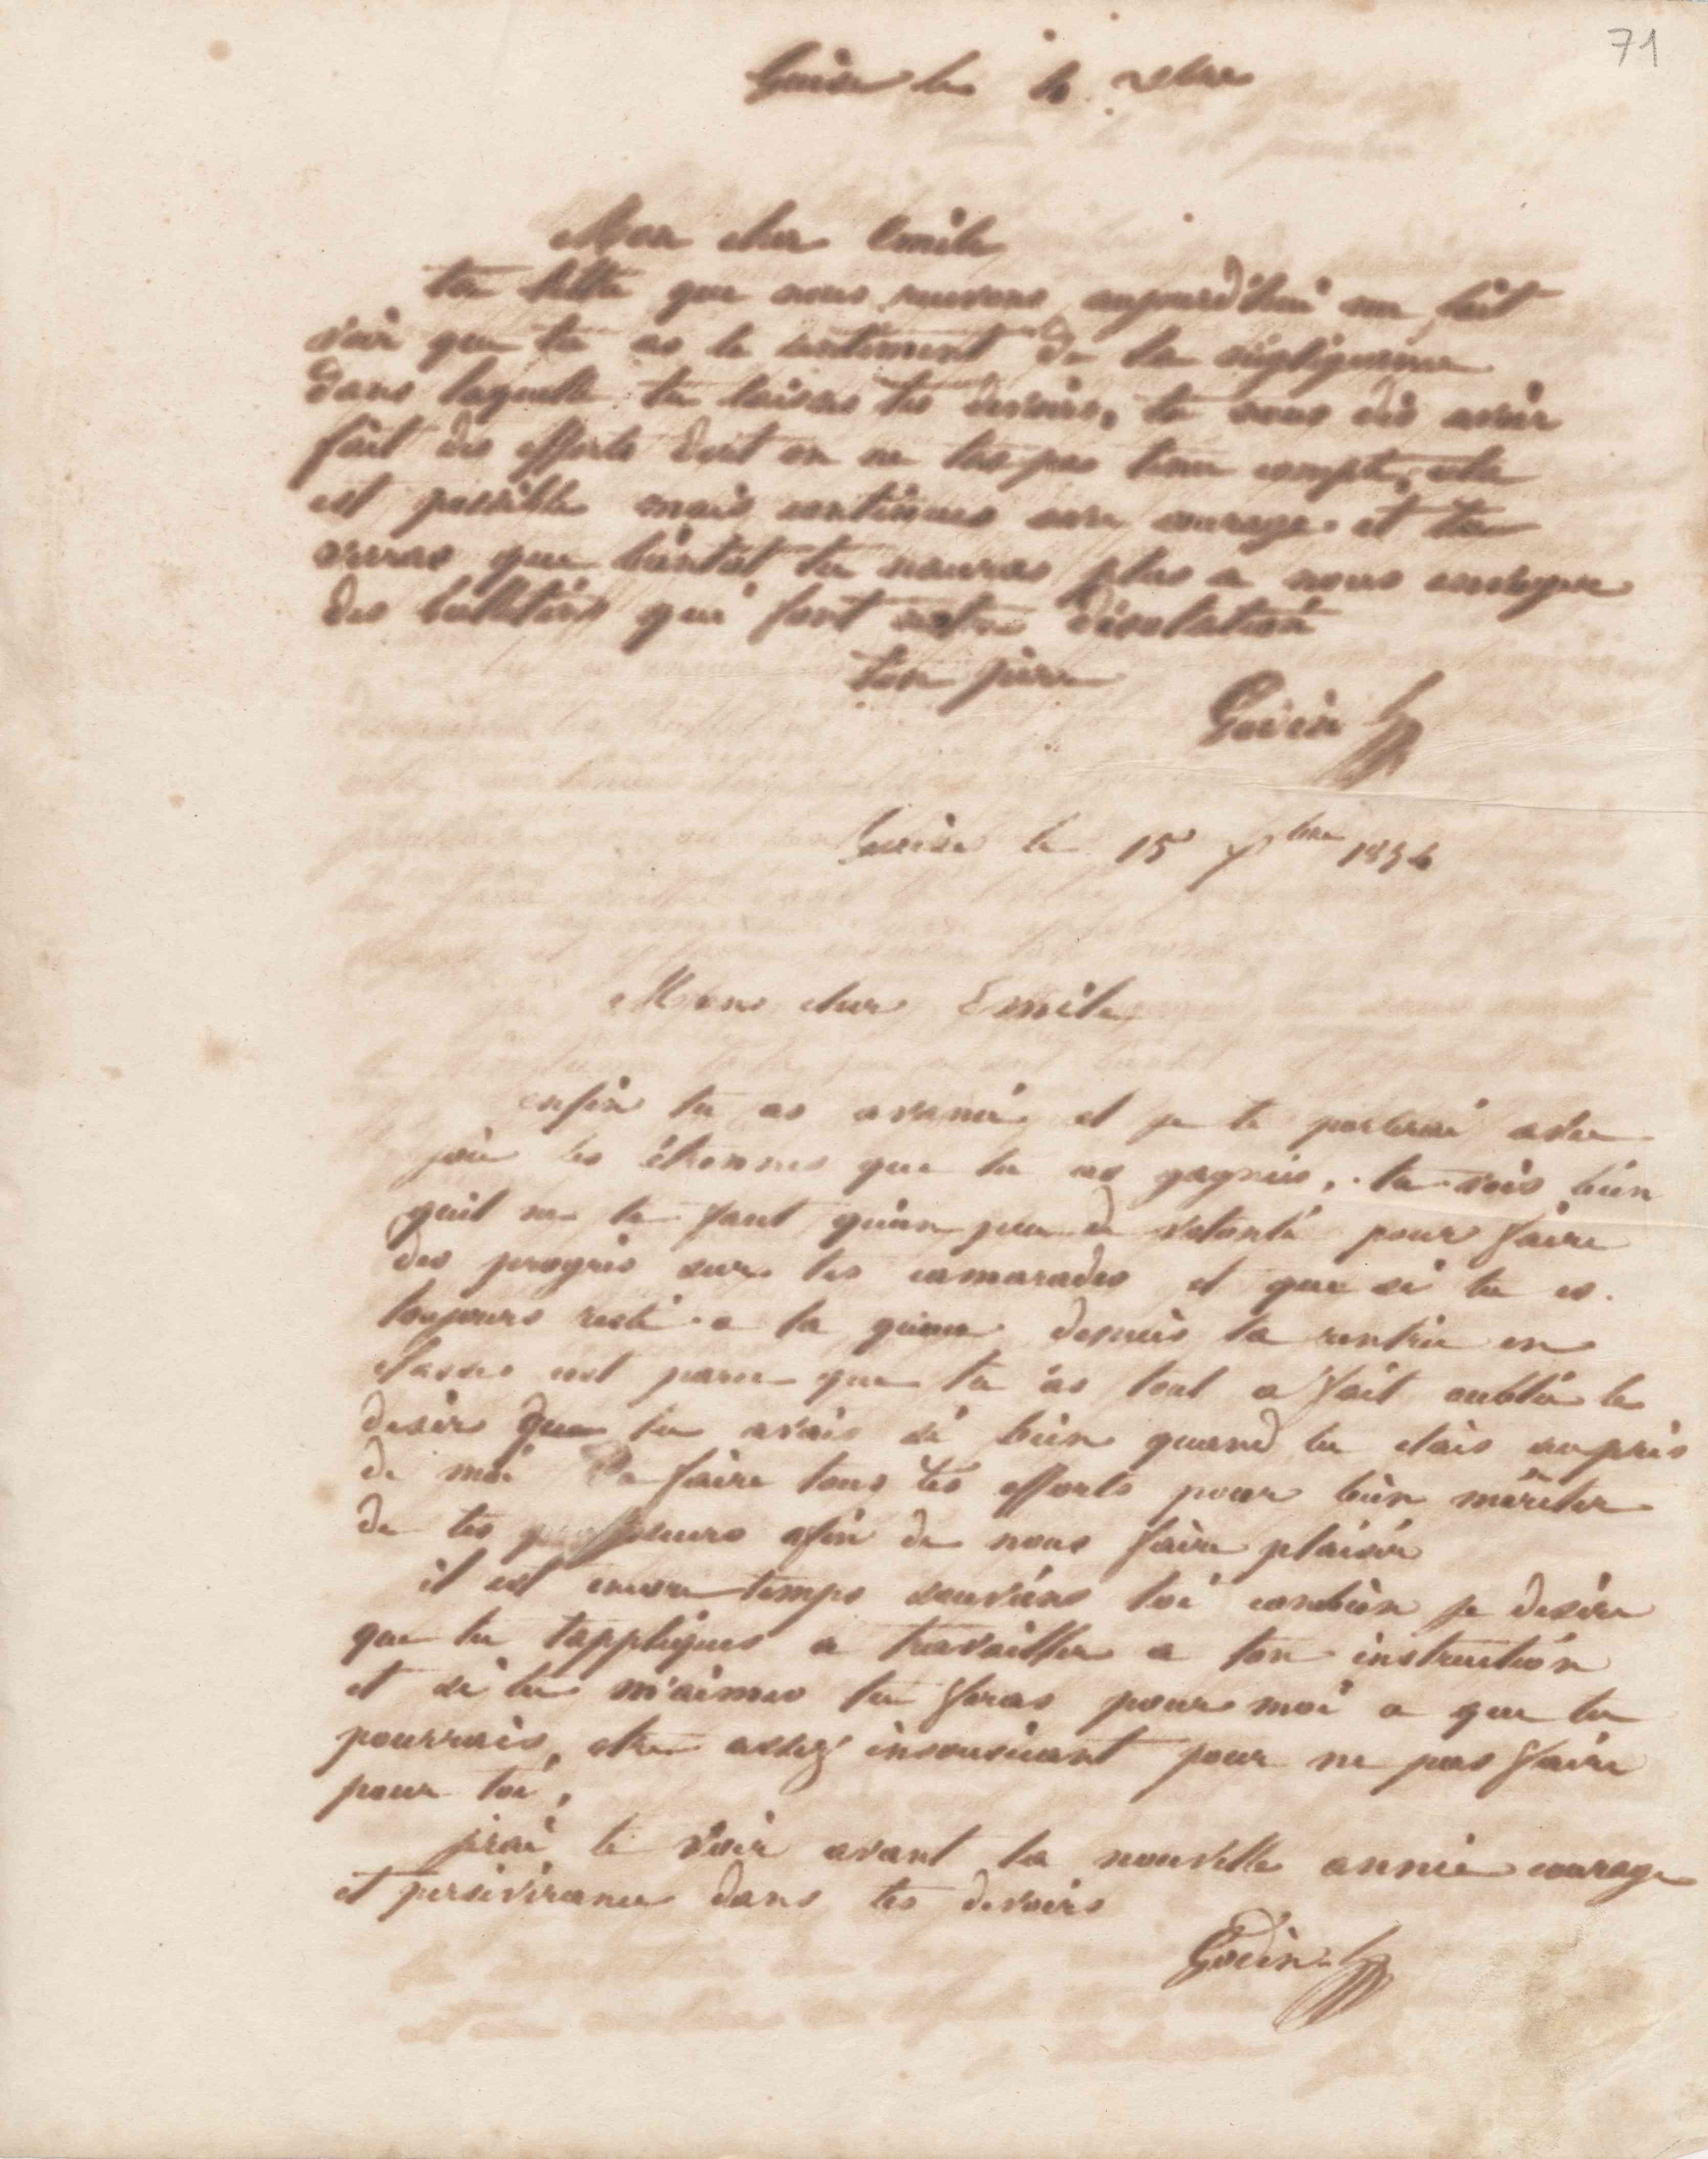 71
Guise le 4 Xbre
Mon cher Emile
ta lettre que nous recevons aujourd'hui me fait
voir que tu as le sentiment de la négligence
dans laquelle tu laisses tes devoirs, tu nous dis avoir
fait des efforts dont on ne t'as pas tenu compte, cela
est possible mais continues avec courage et tu
verras que bientot tu nauras plus a nous envoyer
des bulletins qui font notre désolation
ton père
Godin
Guise le 15 Xbre 1854
Mon cher Emile
enfin tu as avancé et je te porterai avec
joie les étrennes que tu as gagnées, tu vois bien
quil ne te faut qu'un peu de volonté pour faire
des progrès sur tes camarades et que si tu es
toujours resté a la queue depuis ta rentrée en
classe cest parce que tu as tout a fait oublié le
desir que tu avais si bien quand tu etais auprès
de moi De faire tous tes efforts pour bien mériter
de tes professeurs afin de nous faire plaisir
il est encore temps souviens toi combien je desire
que tu t'appliques a travailler a ton instruction
et si tu m'aimes tu feras pour moi ce que tu
pourrais etre assez insousciant pour ne pas faire
pour toi,
jirai te voir avant la nouvelle année courage
et perseverance dans tes devoirs
Godin